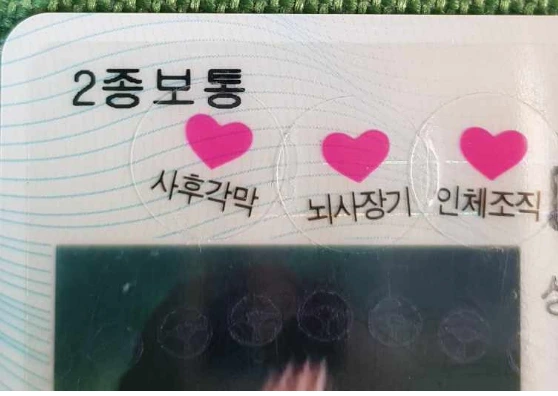 2종보통
사후각막 뇌사장기 인체조직